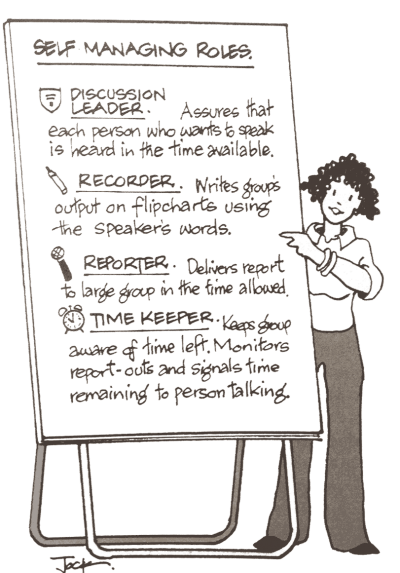 SELF MANAGING ROLES.
DISCUSSION
LEADER. Assures that
each person who wants to speak
is heard in the time available.
RECORDER. Writes group's
output on flipcharts using
the speaker's words.
REPORTER. Delivers report
to large group in the time allowed.
TIME KEEPER. Keeps group
aware of time left. Monitors
report-outs and signals time
remaining to person talking.
Jack.